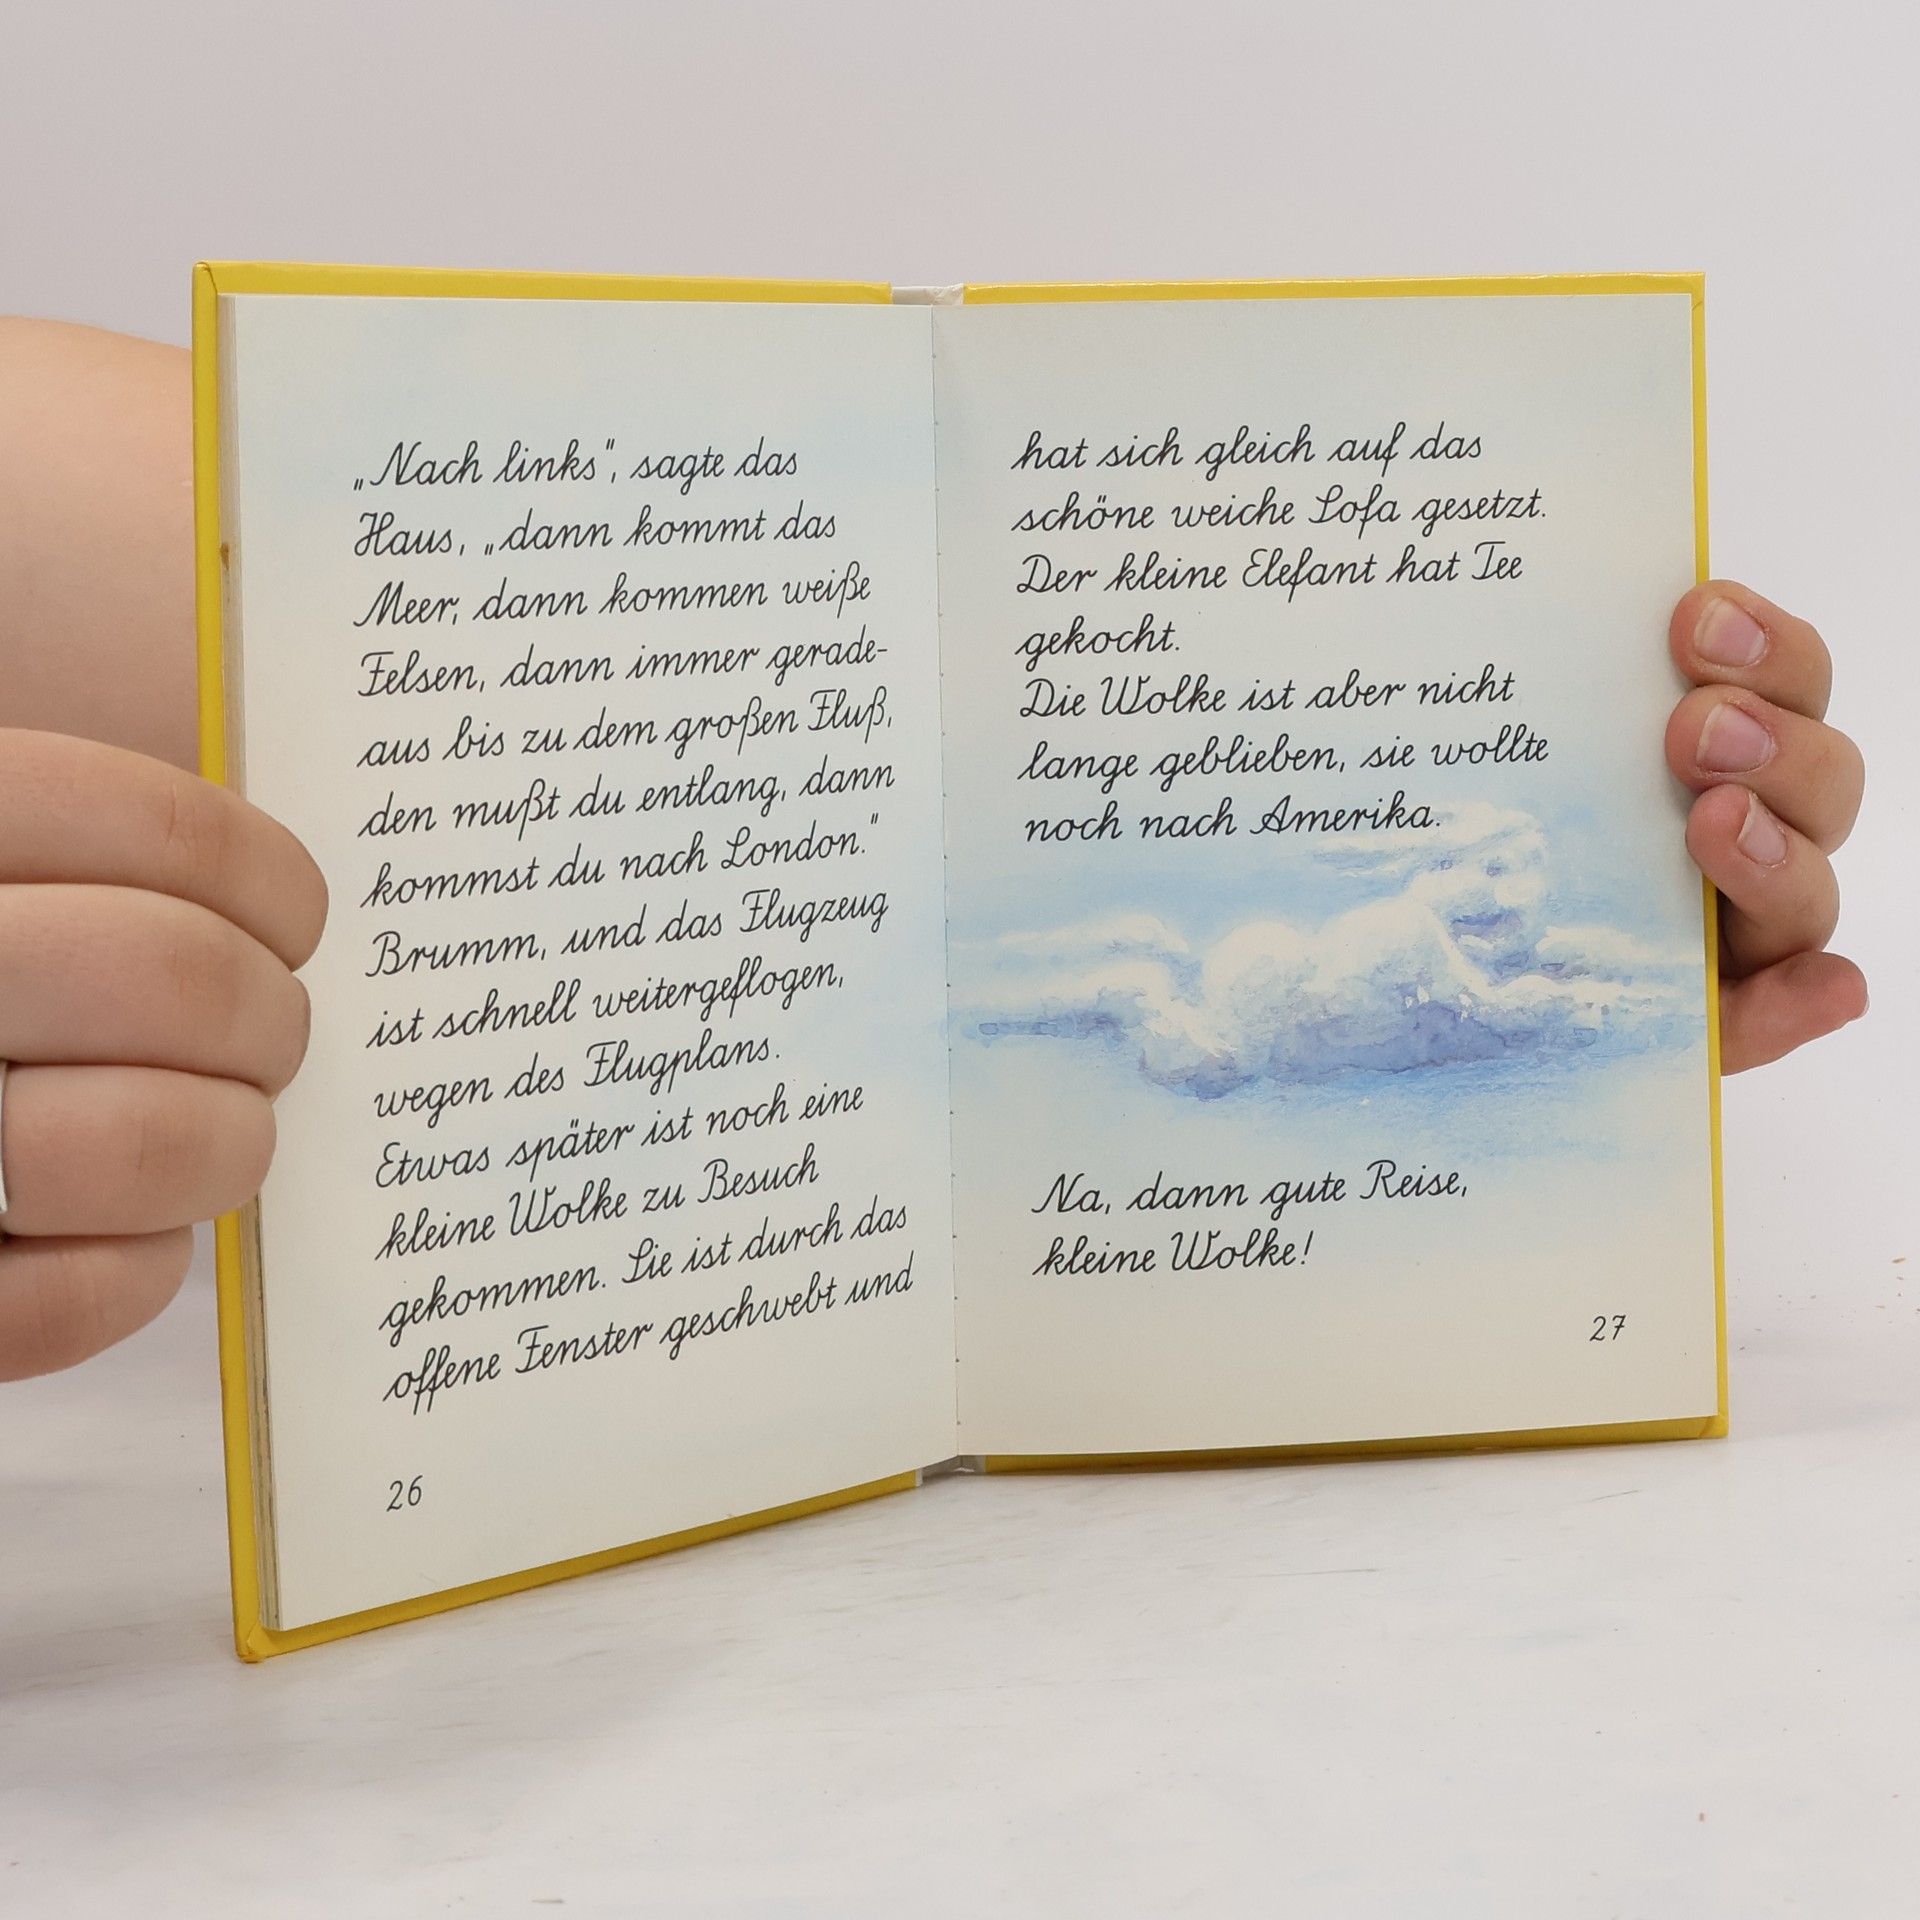 „Nach links", sagte das
Haus, „dann kommt das
Meer, dann kommen weiße
Felsen, dann immer gerade-
aus bis zu dem großen Fluß,
den mußt du entlang, dann
kommst du nach London."
Brumm, und das Flugzeug
ist schnell weitergeflogen,
wegen des Flugplans.
Etwas später ist noch eine
kleine Wolke zu Besuch
gekommen. Sie ist durch das
offene Fenster geschwebt und
26
hat sich gleich auf das
schöne weiche Sofa gesetzt.
Der kleine Elefant hat Tee
gekocht.
Die Wolke ist aber nicht
lange geblieben, sie wollte
noch nach Amerika.
Na, dann gute Reise,
kleine Wolke!
27